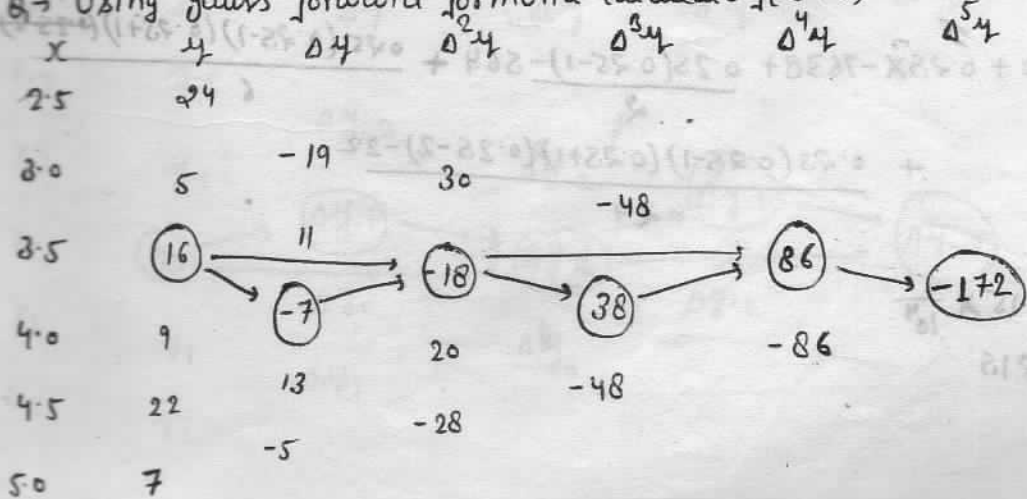 Q → Using gauss forward formula
x y Δy Δ²y Δ³y Δ⁴y Δ⁵y
2.5 24
-19
3.0 5 30
-48
3.5 16 11 -18 86
-7 38 -172
4.0 9 20 -86
13 -48
4.5 22 -28
-5
5.0 7